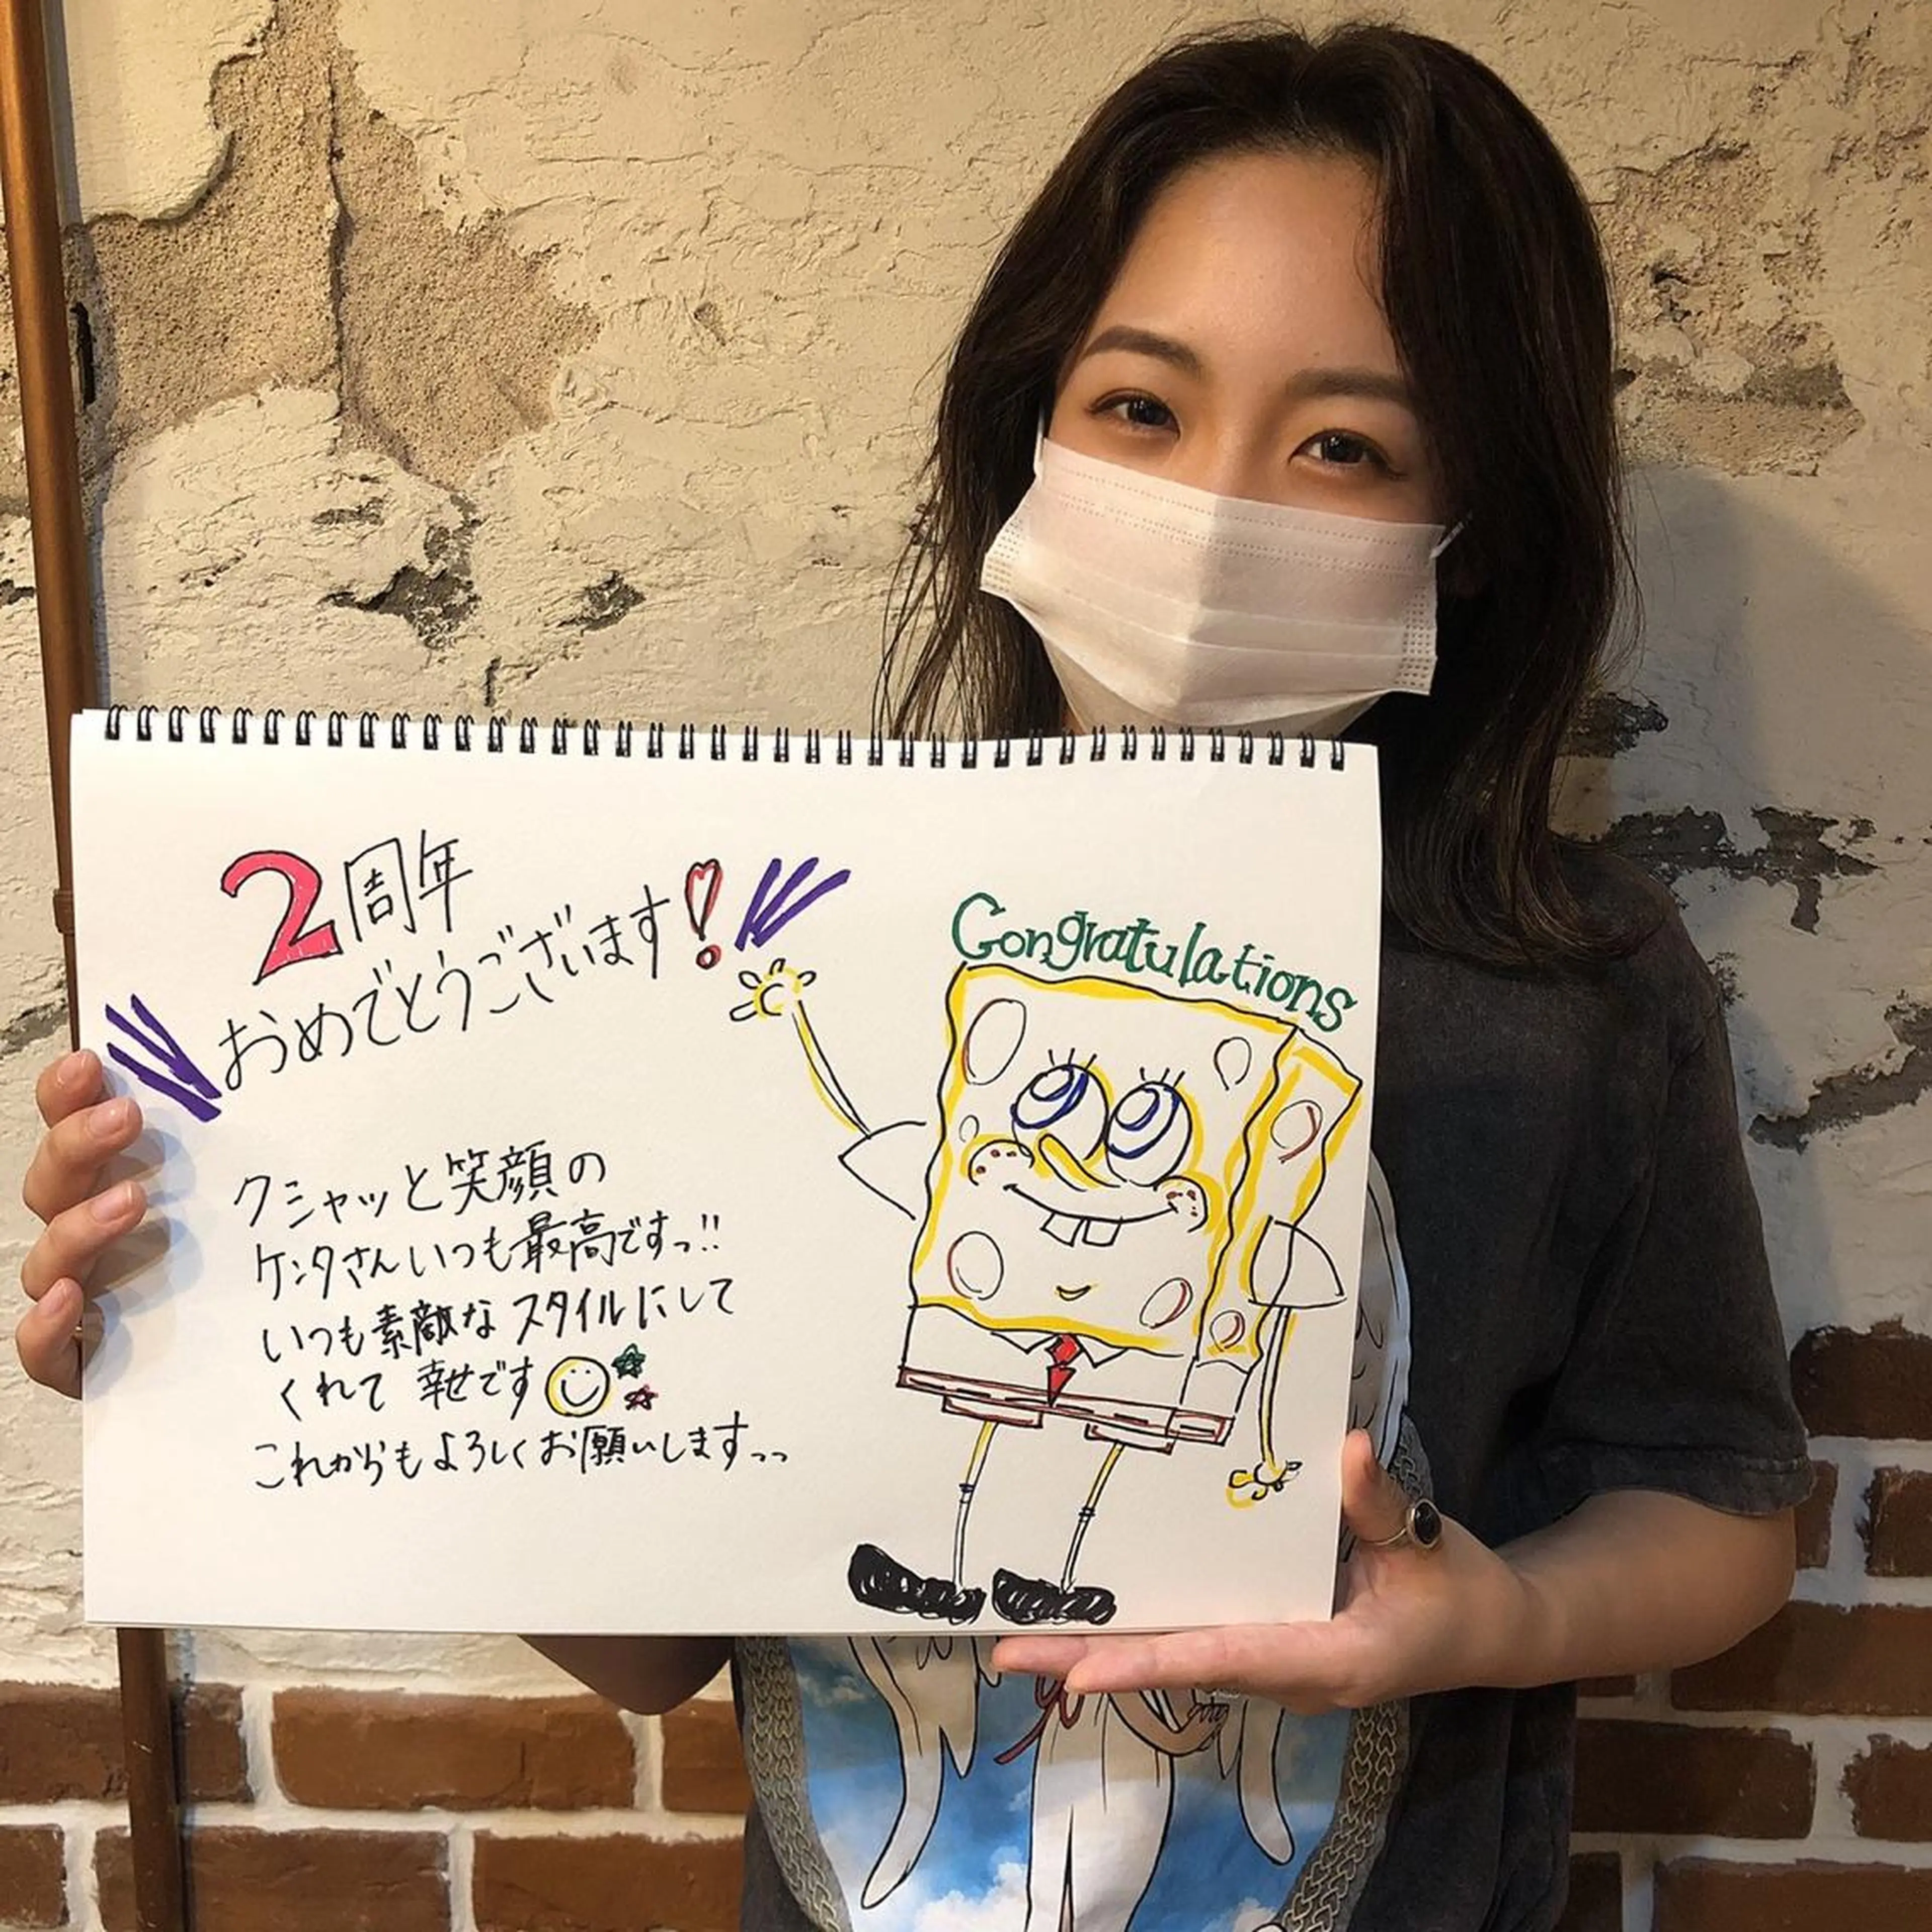 2周年
おめでとうございます!
Congratulations
クシャッと笑顔の
ケンタさんいつも最高ですっ!!
いつも素敵なスタイルにして
くれて幸せです
これからもよろしくお願いしますっっ